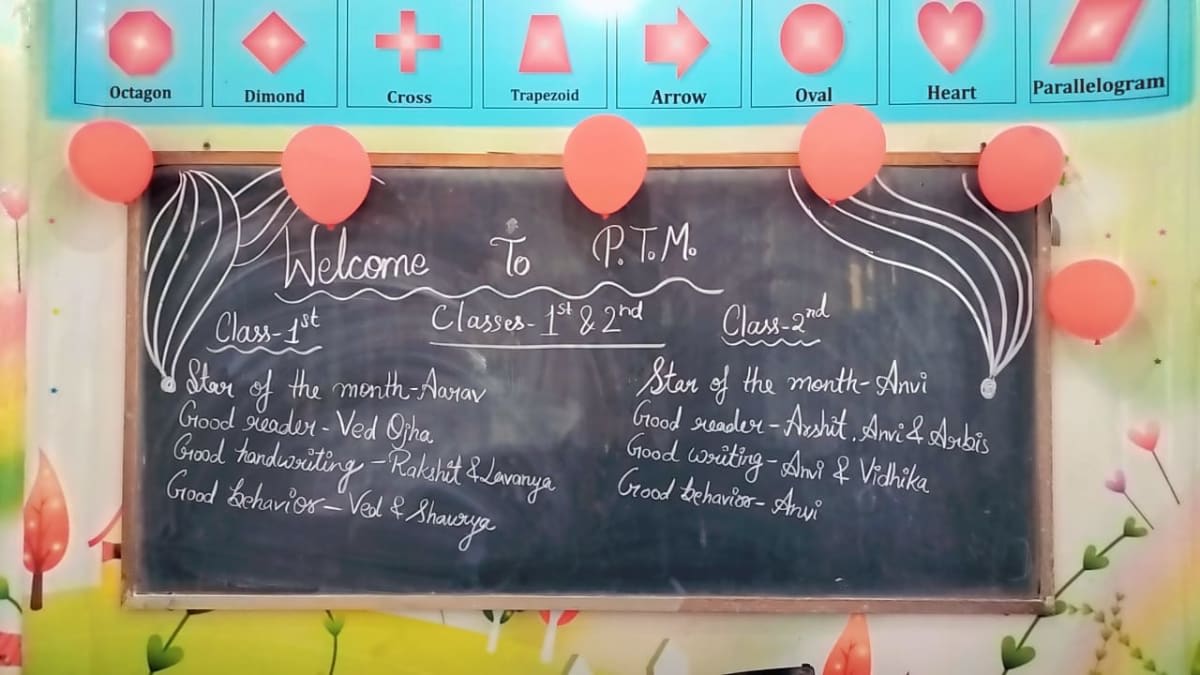 Octagon
Dimond
Cross
Trapezoid
Arrow
Oval
Heart
Parallelogram
Welcome To P.T.M.
Classes- 1st & 2nd
Class-1st
Star of the month-Aarav
Good reader- Ved Ojha
Good handwriting-Rakshit & Lavanya
Good behavior- Ved & Shaurya
Class-2nd
Star of the month- Anvi
Good reader- Arshit, Anvi & Arbis
Good writing- Anvi & Vidhika
Good behavior- Anvi